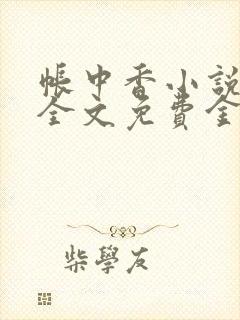 帳中香小說
全文免費全
柴學友